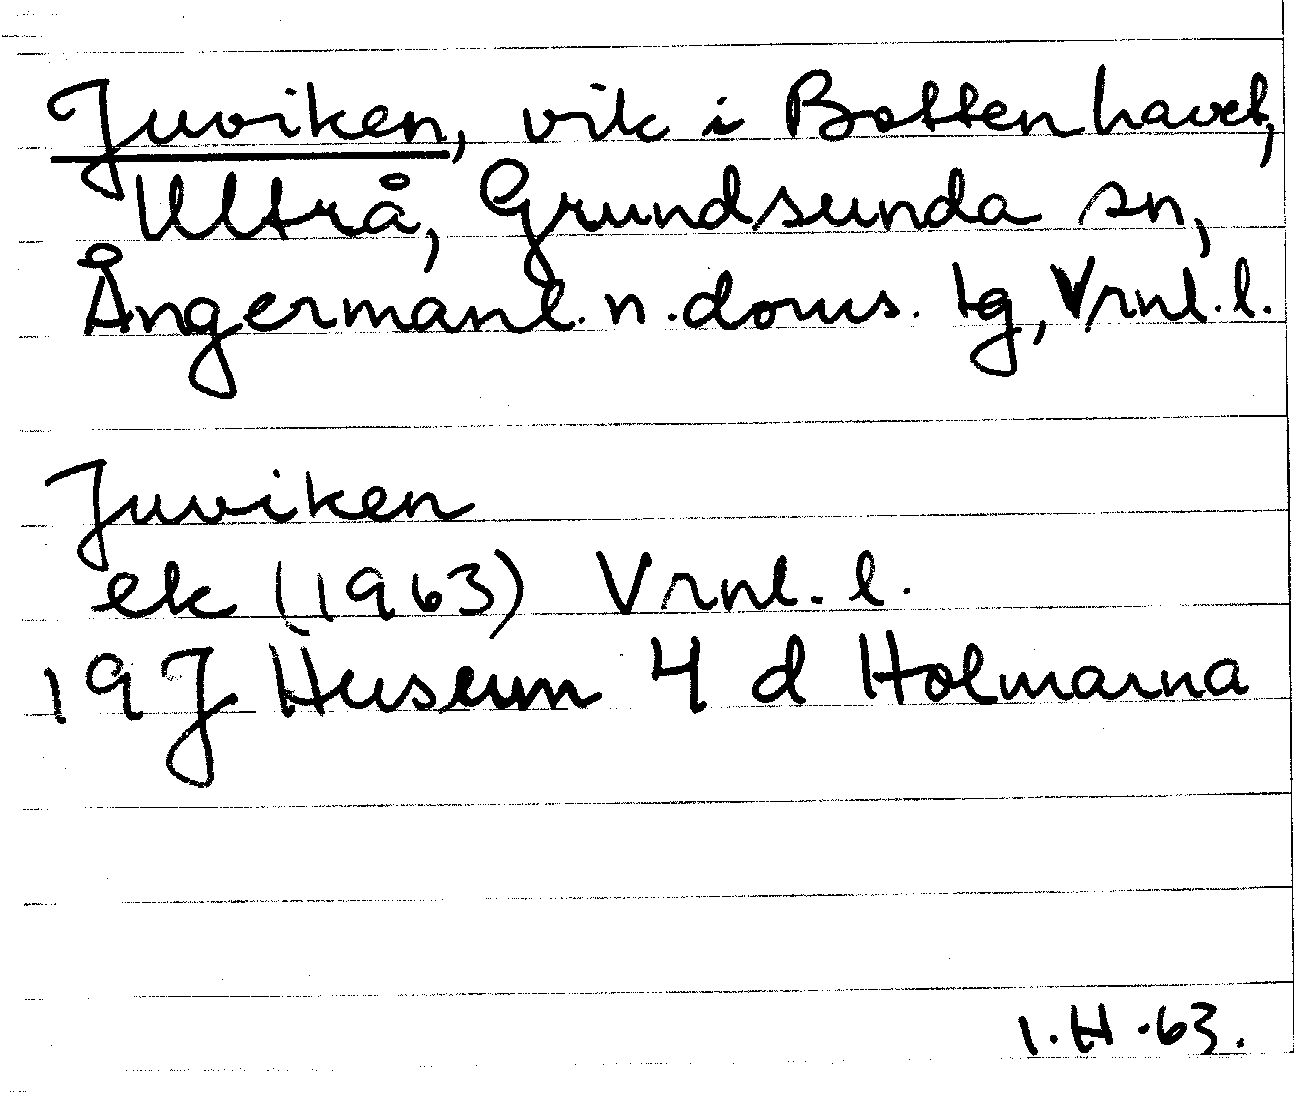 Juviken, vik i Bottenhavet,
Ultrå, Grundsunda sn,
Ångermanl. n. doms. tg, Vrnl. l.
Juviken
ek (1963) Vrnl. l.
19J Husum 4 d Holmarna
I.H.63.